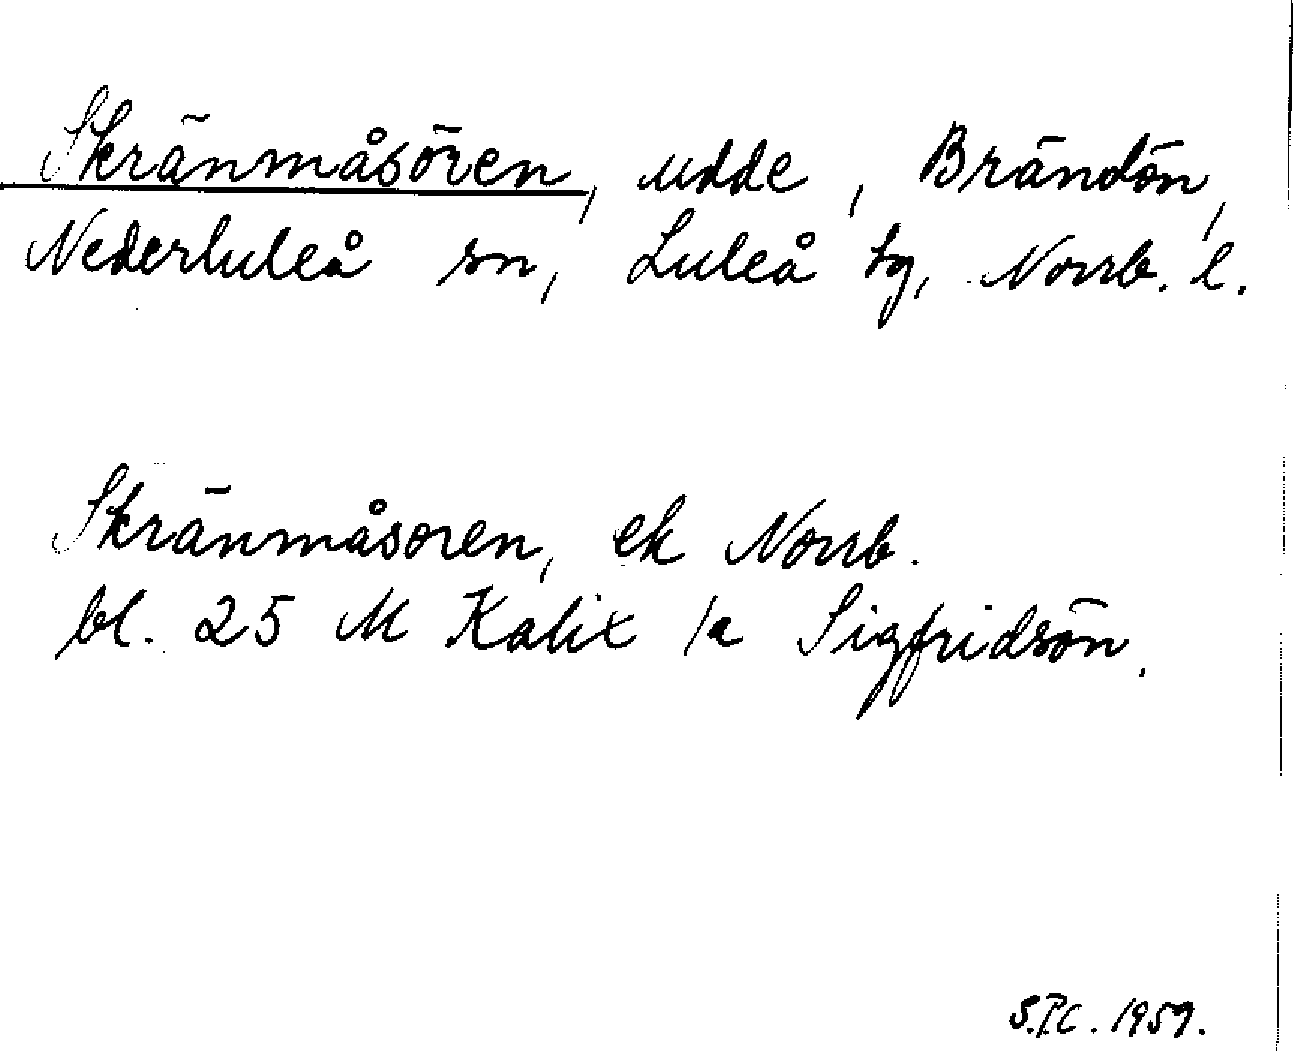 Skränmåsören, udde, Brändön,
Nederluleå sn, Luleå tg, Norrb. l.
Skränmåsoren, ek Norrb.
bl. 25 M Kalix /a Sigfridsön.
S.P.C. 1959.